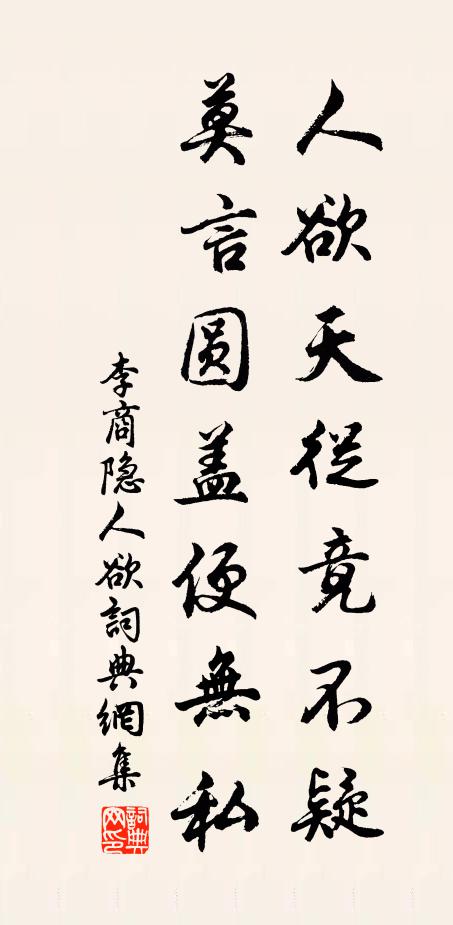 人欲天従竟不疑
莫言圆盖便無私
李商隐人欲詞典網集
詞典网印